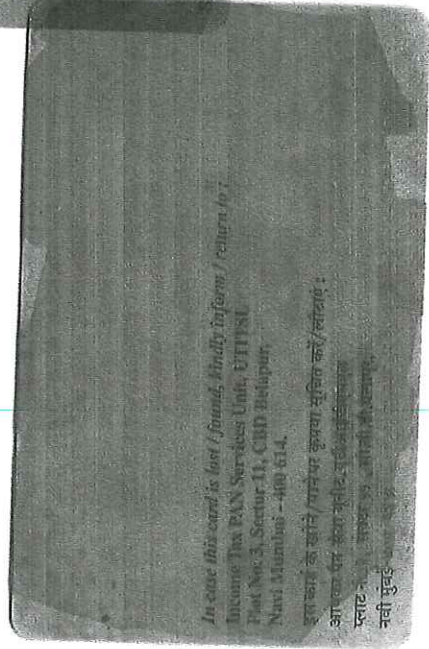 In case this card is lost / found, kindly inform / return to :
Income Tax PAN Services Unit, UTITSL
Plot No: 3, Sector 11, CBD Belapur,
Navi Mumbai - 400 614.
इस कार्ड के खोने/पाने पर कृपया सूचित करें/लौटाएं :
आयकर पैन सेवा यूनीट,
प्लाट
नवी मुंबई